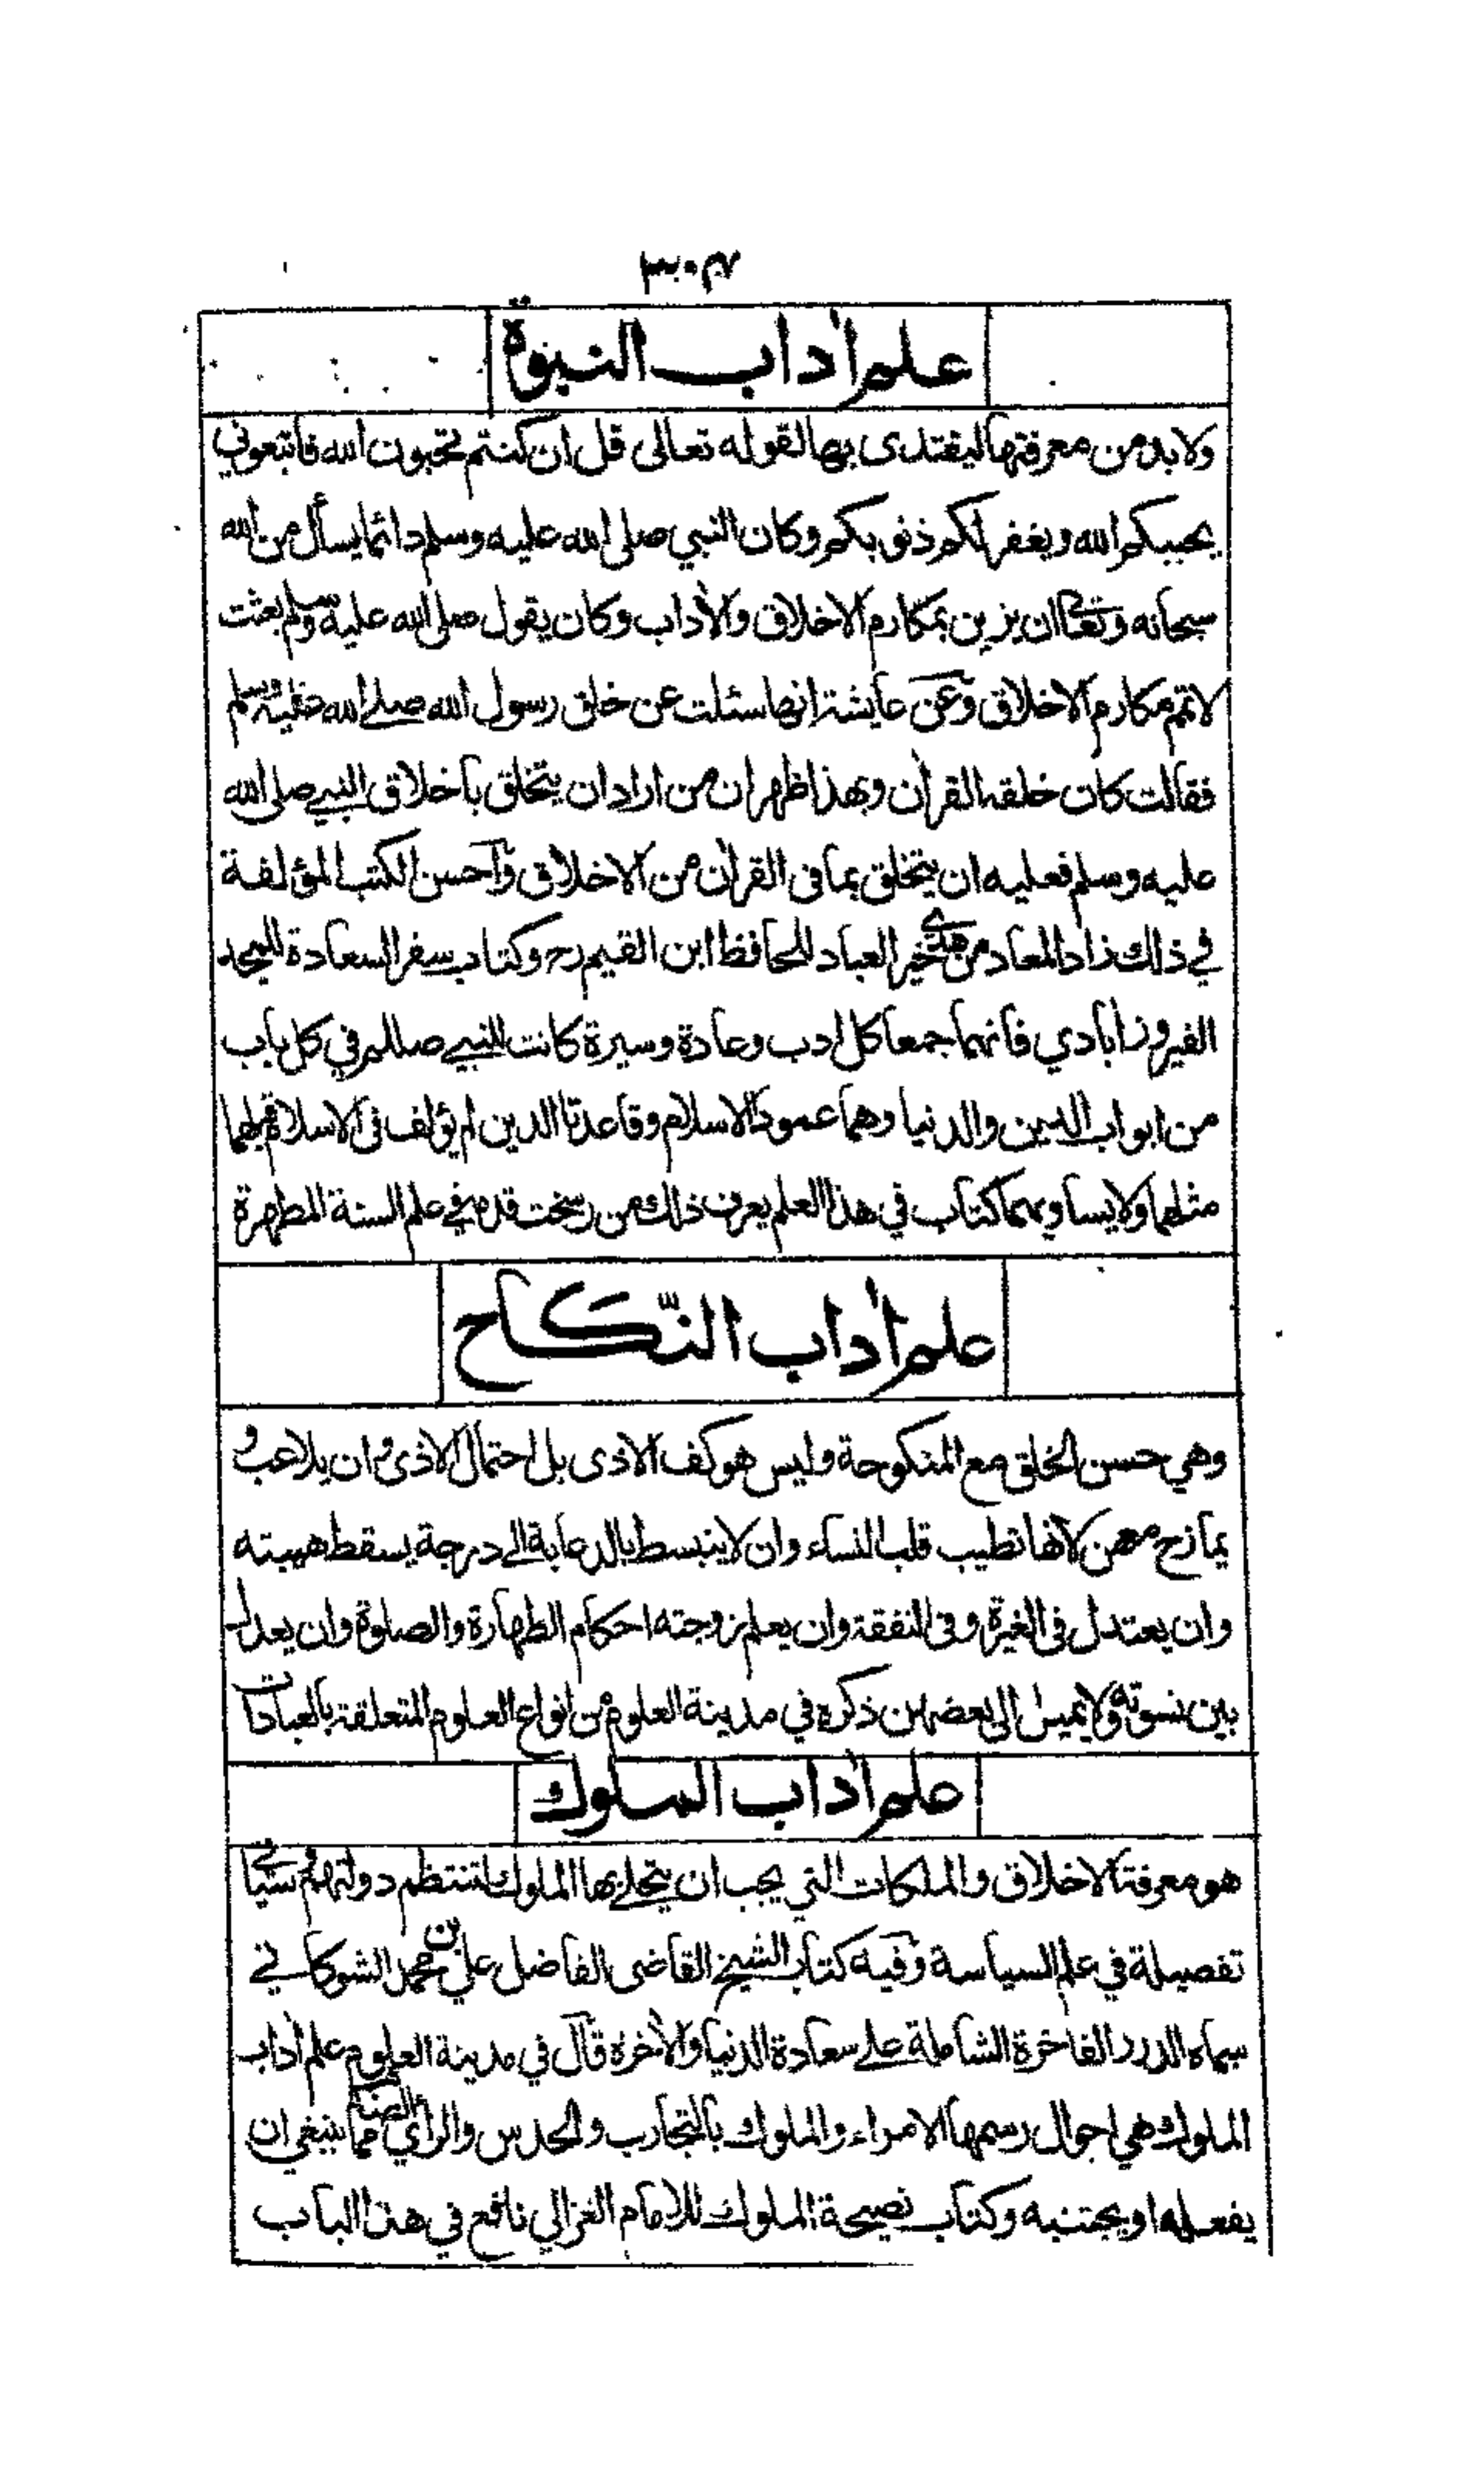 ٣٠٤
علم اٰداب النبوة
ولا بد من معرفتها ليقتدى بها لقوله تعالى قل ان كنتم تحبون الله فاتبعوني
يحببكم الله ويغفر لكم ذنوبكم وكان النبي صلى الله عليه وسلم دائما يسأل من الله
سبحانه وتعالى ان يزين بمكارم الاخلاق والاٰداب وكان يقول صلى الله عليه وسلم بعثت
لاتمم مكارم الاخلاق وعن عايشة انها سئلت عن خلق رسول الله صلى الله عليه وسلم
فقالت كان خلقه القراٰن وبهذا ظهر ان من اراد ان يتخلق بأخلاق النبي صلى الله
عليه وسلم فعليه ان يتخلق بما فى القراٰن من الاخلاق وآحسن الكتب المؤلفة
في ذلك زاد المعاد من هدي خير العباد للحافظ ابن القيم رح وكتاب سفر السعادة للمجد
الفيروزاٰبادي فانهما جمعا كل ادب وعادة وسيرة كانت للنبي صللم في كل باب
من ابواب الدين والدنيا وهما عمود الاسلام وقاعدتا الدين لم يؤلف فى الاسلام قبلهما
مثلهما ولا يساويهما كتاب في هذا العلم يعرف ذلك من رسخت قدمه في علم السنة المطهرة
علم اٰداب النّكاح
وهي حسن الخلق مع المنكوحة وليس هو كف الاذى بل احتمال الاذى وان يلاعب و
يمازح معهن لأنها تطيب قلب النساء وان لا ينبسط بالدعابة الى درجة يسقط هيبته
وان يعتدل فى الغيرة وفى النفقة وان يعلم زوجته احكام الطهارة والصلوة وان يعدل
بين نسوته ولا يميل الى بعضهن ذكره في مدينة العلوم من انواع العلوم المتعلقة بالعبادات
علم اٰداب الملوك
هو معرفة الاخلاق والملكات التي يجب ان يتحلى بها الملوك لتنتظم دولتهم وسيأتي
تفصيله في علم السياسة وفيه كتاب الشيخ القاضى الفاضل علي بن محمد الشوكاني
سماه الدرر الفاخرة الشاملة على سعادة الدنيا والاٰخرة قال في مدينة العلوم علم اٰداب
الملوك هي احوال رسمها الامراء والملوك بالتجارب والحدس والرأي مما ينبغي ان
يفعله او يجتنبه وكتاب نصيحة الملوك للامام الغزالي نافع في هذا الباب